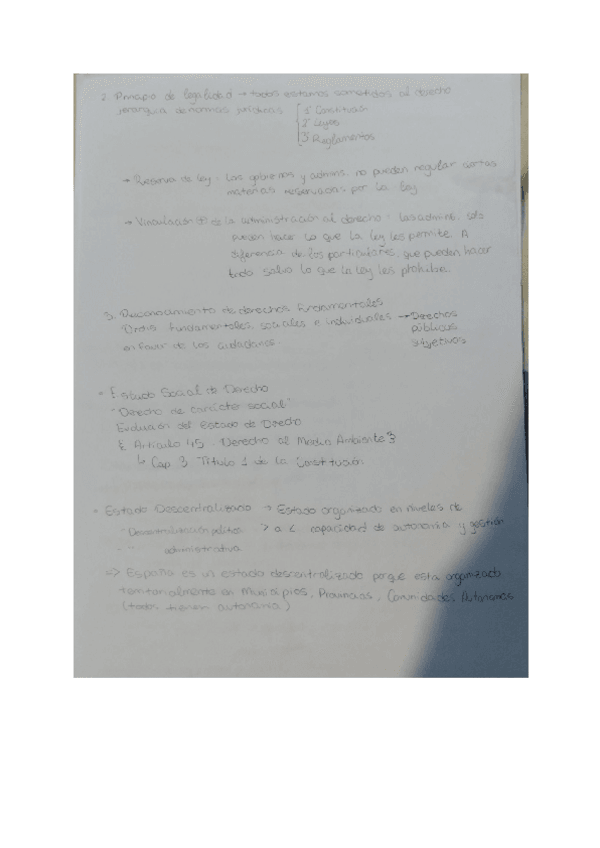 2. Principio de legalidad → todos estamos sometidos al derecho
jerarquía de normas jurídicas
1º Constitución
2º Leyes
3º Reglamentos
→ Reserva de ley · Los gobiernos y admins. no pueden regular ciertas
materias reservadas por la ley
→ Vinculación (+) de la administración al derecho · las admins. solo
pueden hacer lo que la ley les permite. A
diferencia de los particulares, que pueden hacer
todo salvo lo que la ley les prohíbe.
3. Reconocimiento de derechos fundamentales
fundamentales, sociales e individuales → Derechos
en favor de los ciudadanos. públicos
subjetivos
• Estado Social de Derecho
"Derecho de carácter social"
Evolución del Estado de Derecho
Artículo 45. Derecho al Medio Ambiente
↳ Cap. 3 Título 1 de la Constitución
• Estado Descentralizado → Estado organizado en niveles de
"Descentralización política > a < capacidad de autonomía y gestión
" administrativa
=> España es un estado descentralizado porque esta organizado
territorialmente en Municipios, Provincias, Comunidades Autónomas
(todos tienen autonomía)